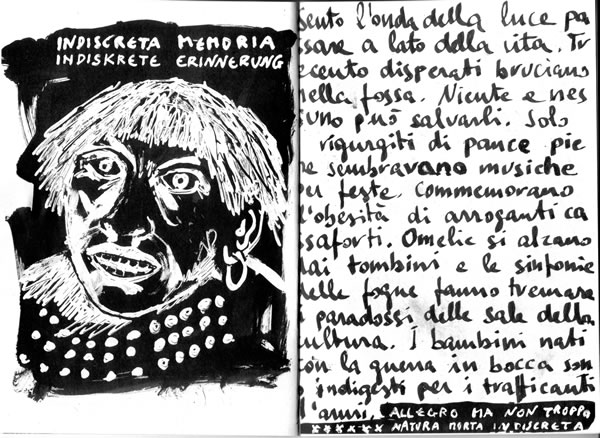 INDISCRETA MEMORIA
INDISKRETE ERINNERUNG
Sento l'onda della luce pa
ssare a lato della vita. Tr
ecento disperati bruciano
nella fossa. Niente e nes
suno può salvarli. Solo
rigurgiti di pance pie
ne sembravano musiche
per feste. Commemorano
l'obesità di arroganti ca
ssaforti. Omelie si alzano
dai tombini e le sinfonie
delle fogne fanno tremare
i paradossi delle sale della
cultura. I bambini nati
con la guerra in bocca son
o indigesti per i trafficanti
d'armi. ALLEGRO MA NON TROPPO
NATURA MORTA INDISCRETA